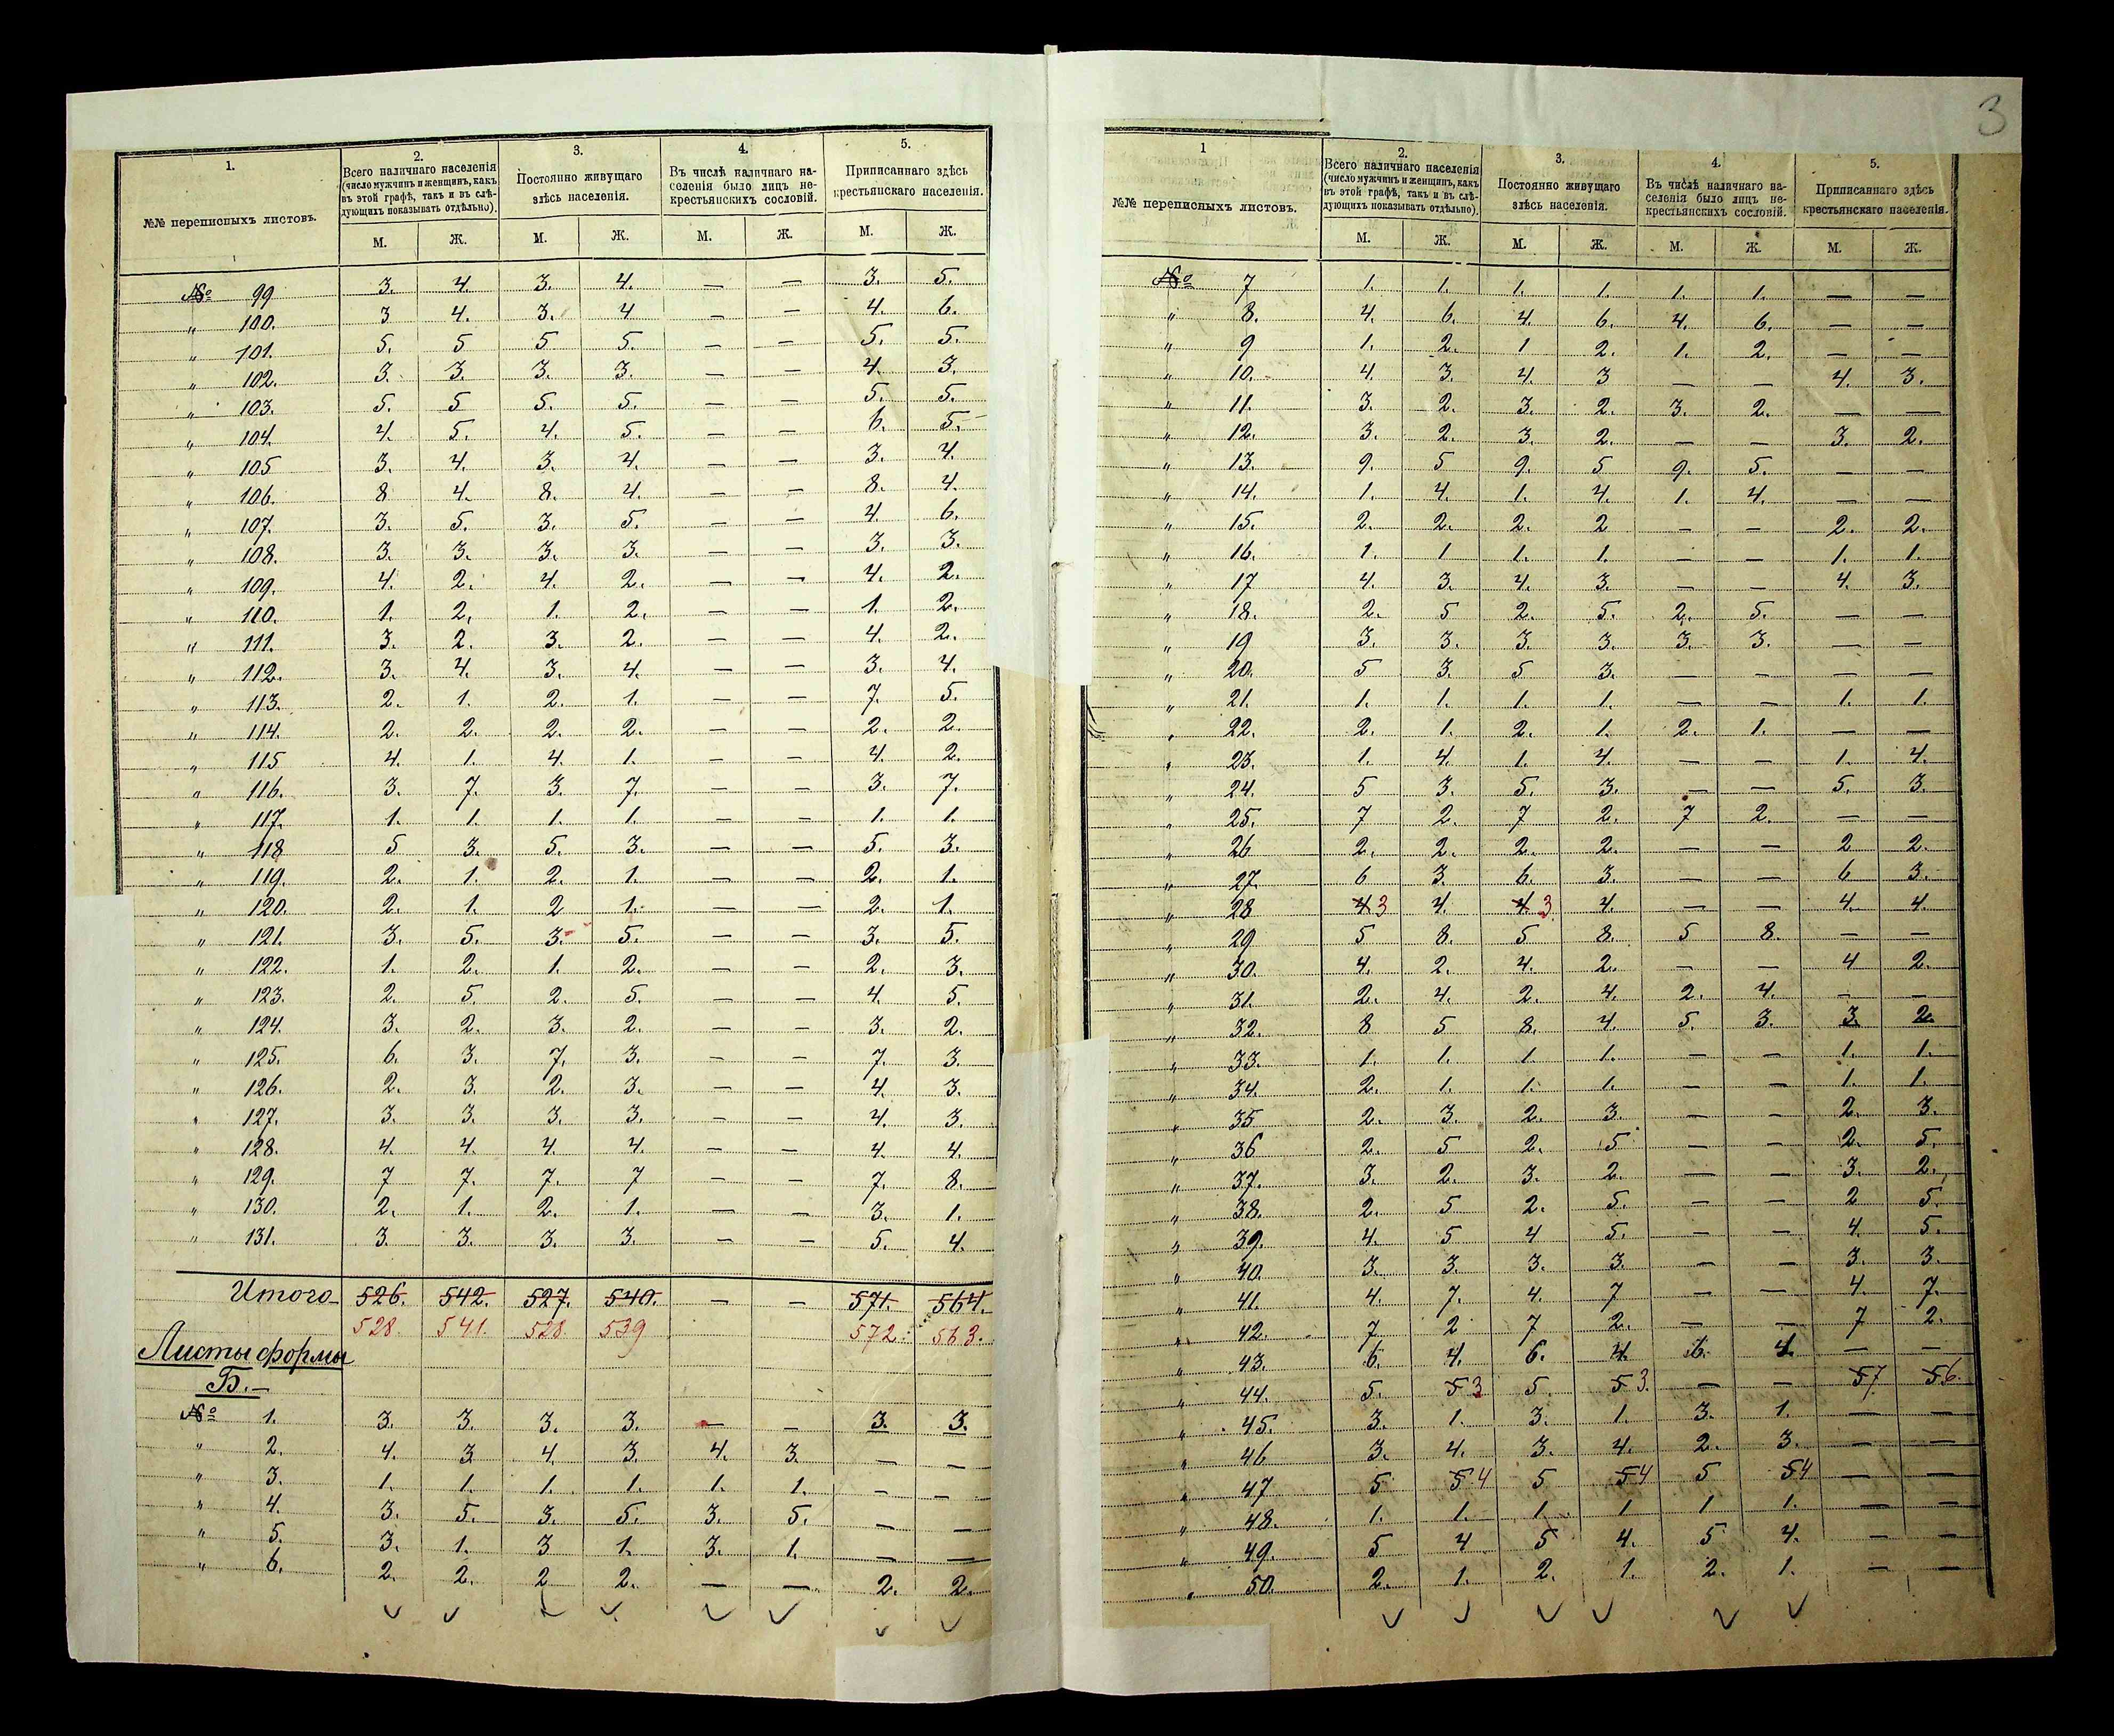 1. 2. 3. 4. 5.
№№ переписныхъ листовъ.
Всего наличнаго населенія
(число мужчинъ и женщинъ, какъ
въ этой графѣ, такъ и въ слѣ-
дующихъ показывать отдѣльно).
Постоянно живущаго
здѣсь населенія.
Въ числѣ наличнаго на-
селенія было лицъ не-
крестьянскихъ сословій.
Приписаннаго здѣсь
крестьянскаго населенія.
М. Ж. М. Ж. М. Ж. М. Ж.
№ 99 3. 4. 3. 4. — — 3. 5.
" 100. 3 4. 3. 4 — — 4. 6.
" 101. 5. 5 5 5. — — 5. 5.
" 102. 3. 3. 3. 3. — — 4. 3.
" 103. 5. 5 5. 5. — — 5. 5.
" 104. 4. 5. 4. 5. — — 6. 5.
" 105 3. 4. 3. 4. — — 3. 4.
" 106. 8 4. 8. 4. — — 8. 4.
" 107. 3. 5. 3. 5. — — 4. 6.
" 108. 3. 3. 3. 3. — — 3. 3.
" 109. 4. 2. 4. 2. — — 4. 2.
" 110. 1. 2. 1. 2. — — 1. 2.
" 111. 3. 2. 3. 2. — — 4. 2.
" 112. 3. 4. 3. 4. — — 3. 4.
" 113. 2. 1. 2. 1. — — 7. 5.
" 114. 2. 2. 2. 2. — — 2. 2.
" 115 4. 1. 4. 1. — — 4. 2.
" 116. 3. 7. 3. 7. — — 3. 7.
" 117. 1. 1. 1. 1. — — 1. 1.
" 118 5 3. 5. 3. — — 5. 3.
" 119. 2. 1. 2. 1. — — 2. 1.
" 120. 2. 1. 2 1. — — 2. 1.
" 121. 3. 5. 3. 5. — — 3. 5.
" 122. 1. 2. 1. 2. — — 2. 3.
" 123. 2. 5. 2. 5. — — 4. 5.
" 124. 3. 2. 3. 2. — — 3. 2.
" 125. 6. 3. 7. 3. — — 7. 3.
" 126. 2. 3. 2. 3. — — 4. 3.
" 127. 3. 3. 3. 3. — — 4. 3.
" 128. 4. 4. 4. 4. — — 4. 4.
" 129. 7 7. 7. 7 — — 7. 8.
" 130. 2. 1. 2. 1. — — 3. 1.
" 131. 3. 3. 3. 3. — — 5. 4.
Итого 526. 542. 527. 540. — — 571. 564.
528. 541. 528. 539 572. 563.
Листы формы
Б.—
№ 1. 3. 3. 3. 3. — — 3. 3.
" 2. 4. 3 4. 3. 4. 3. — —
" 3. 1. 1. 1. 1. 1. 1. — —
" 4. 3. 5. 3. 5. 3. 5. — —
" 5. 3. 1. 3 1. 3. 1. — —
" 6. 2. 2. 2 2. — — 2. 2.
3
1 2. 3. 4. 5.
№№ переписныхъ листовъ.
Всего наличнаго населенія
(число мужчинъ и женщинъ, какъ
въ этой графѣ, такъ и въ слѣ-
дующихъ показывать отдѣльно).
Постоянно живущаго
здѣсь населенія.
Въ числѣ наличнаго на-
селенія было лицъ не-
крестьянскихъ сословій.
Приписаннаго здѣсь
крестьянскаго населенія.
М. Ж. М. Ж. М. Ж. М. Ж.
№ 7 1. 1. 1. 1. 1. 1. — —
" 8. 4. 6. 4. 6. 4. 6. — —
" 9 1. 2. 1 2. 1. 2. — —
" 10. 4. 3. 4. 3 — — 4. 3.
" 11. 3. 2. 3. 2. 3. 2. — —
" 12. 3. 2. 3. 2. — — 3. 2.
" 13. 9. 5 9. 5 9. 5. — —
" 14. 1. 4. 1. 4. 1. 4. — —
" 15. 2. 2. 2. 2 — — 2. 2.
" 16. 1. 1 1. 1. — — 1. 1.
" 17 4. 3. 4. 3. — — 4. 3.
" 18. 2. 5 2. 5. 2. 5. — —
" 19 3. 3. 3. 3. 3. 3. — —
" 20. 5 3. 5 3. — — — —
" 21. 1. 1. 1. 1. — — 1. 1.
" 22. 2. 1. 2. 1. 2. 1. — —
" 23. 1. 4. 1. 4. — — 1. 4.
" 24. 5 3. 5. 3. — — 5. 3.
" 25. 7 2. 7 2. 7 2. — —
" 26 2. 2. 2. 2. — — 2 2.
" 27. 6 3. 6. 3. — — 6 3.
" 28 4 3 4. 4 3 4. — — 4. 4
" 29 5 8. 5 8. 5 8. — —
" 30. 4. 2. 4. 2. — — 4 2.
" 31. 2. 4. 2. 4. 2. 4. — —
" 32. 8 5 8. 4. 5. 3. 3. 2.
" 33. 1. 1. 1. 1. — — 1. 1.
" 34. 2. 1. 1. 1. — — 1. 1.
" 35 2. 3. 2. 3. — — 2. 3.
" 36 2. 5 2. 5 — — 2. 5.
" 37. 3. 2. 3. 2. — — 3. 2.
" 38. 2. 5 2. 5. — — 2 5.
" 39. 4. 5 4 5. — — 4. 5.
" 40. 3. 3. 3. 3. — — 3. 3.
" 41. 4. 7. 4. 7 — — 4. 7.
" 42. 7. 2 7 2. — — 7 2.
" 43. 6. 4. 6. 4. 6. 4. — —
" 44. 5. 5 3 5. 5 3. — — 5 7. 5 6.
" 45. 3. 1. 3. 1. 3. 1. — —
" 46 3. 4. 3. 4. 2. 3. — —
" 47. 5 5 4 5 5 4 5 5 4 — —
" 48. 1. 1. 1. 1 1 1. — —
" 49. 5 4 5 4. 5 4. — —
" 50. 2. 1. 2. 1. 2. 1. — —